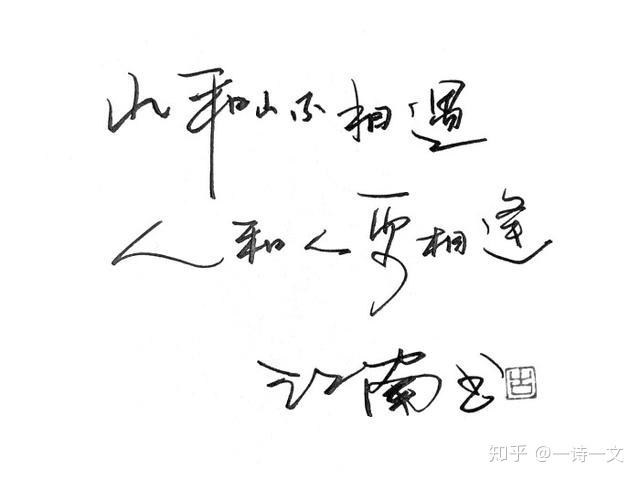 山和山不相遇
人和人要相逢
江南书
古
知乎 @一诗一文